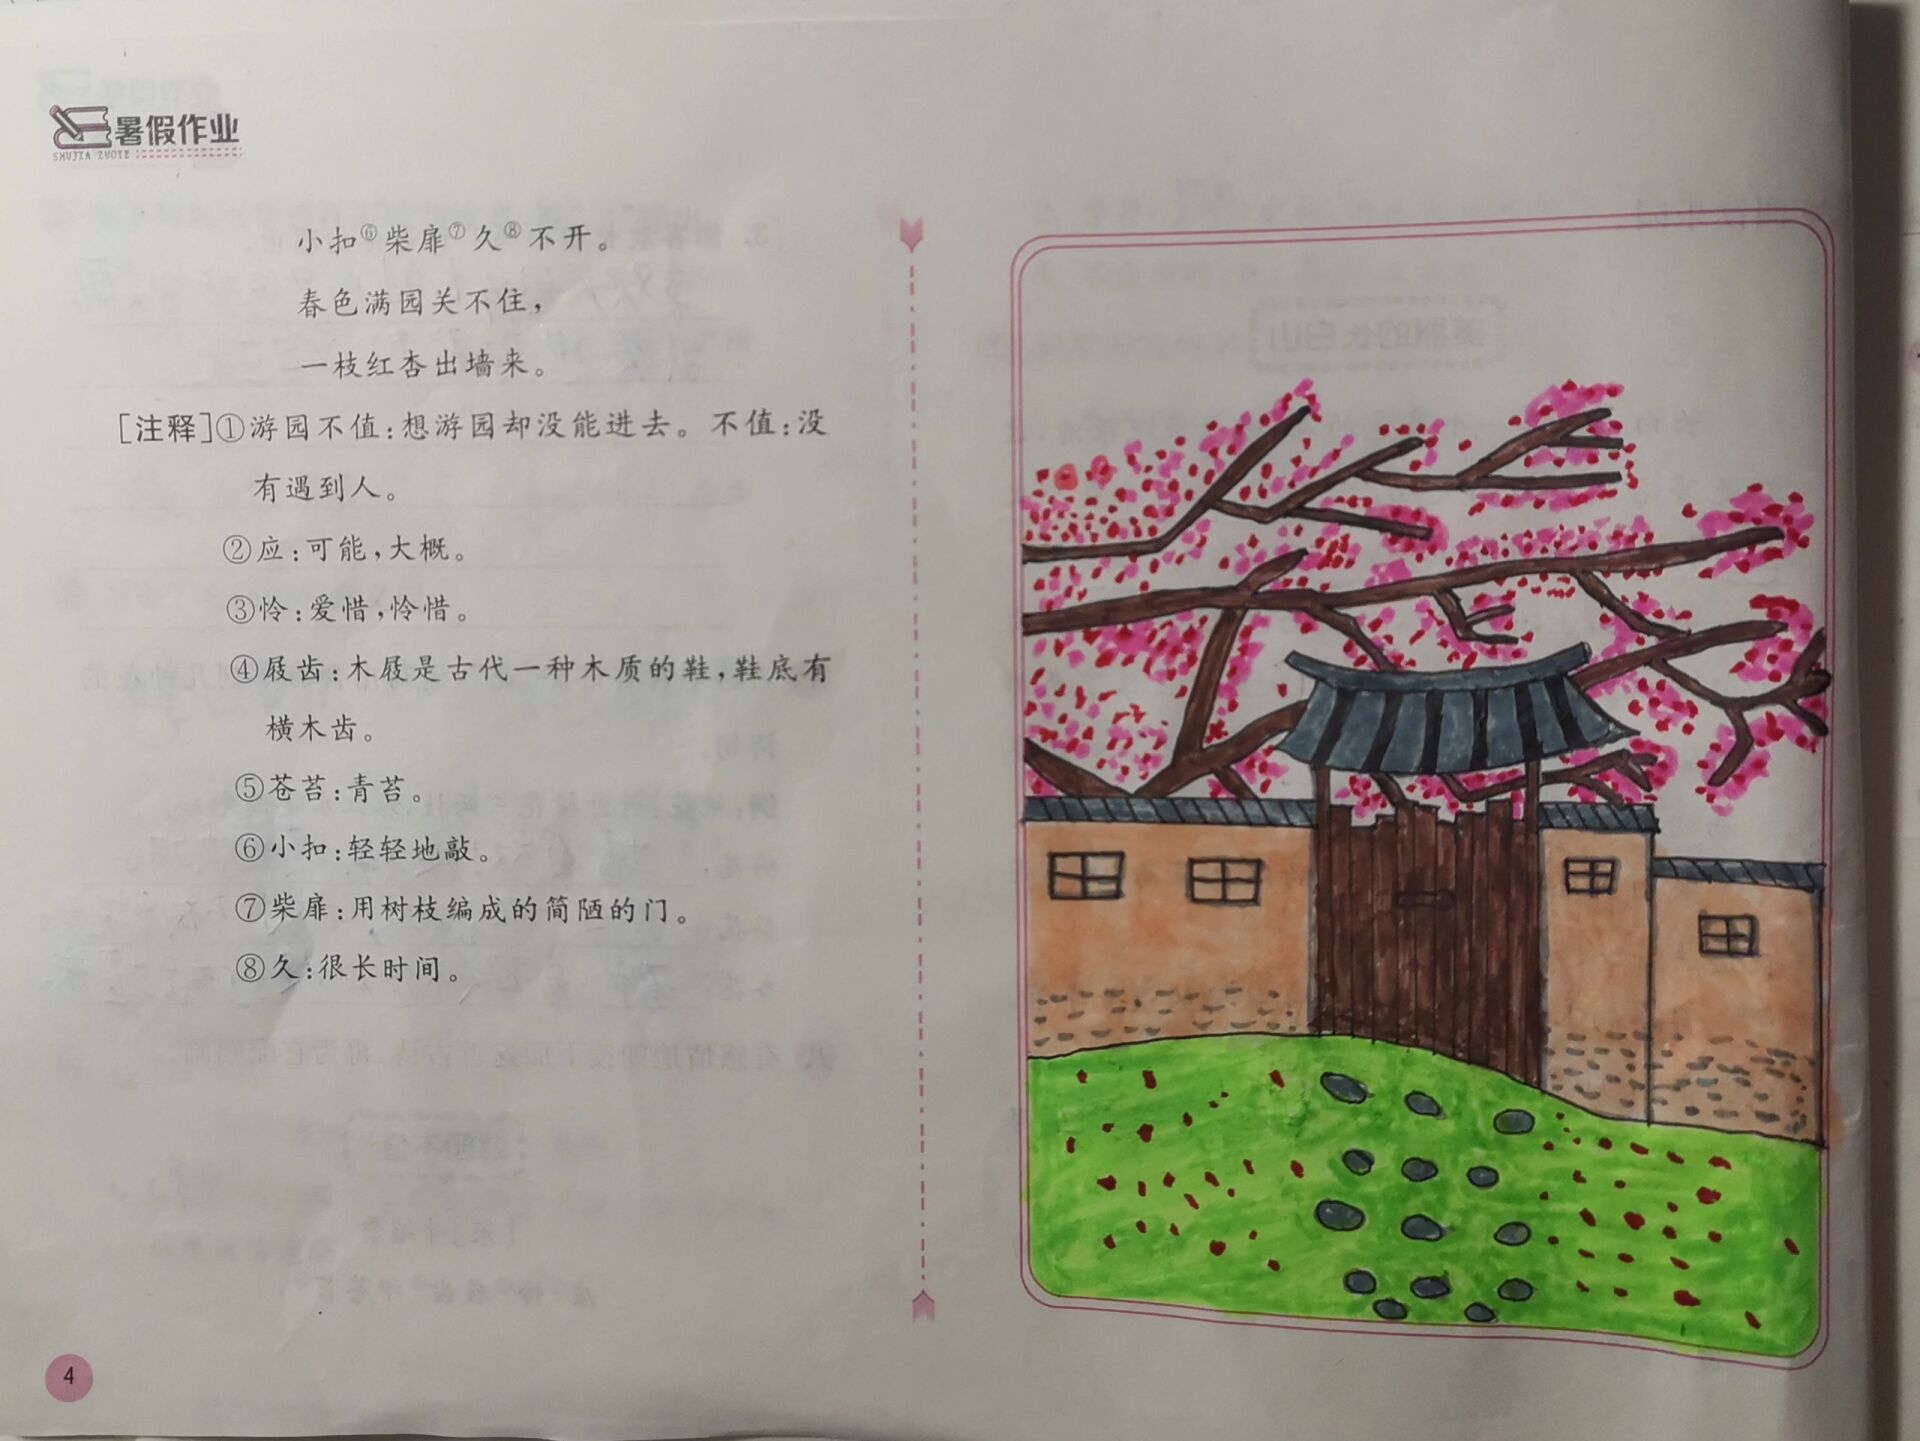 暑假作业
SHUJIA ZUOYE
小扣⑥柴扉⑦久⑧不开。
春色满园关不住，
一枝红杏出墙来。
[注释]①游园不值:想游园却没能进去。不值:没
有遇到人。
②应:可能,大概。
③怜:爱惜,怜惜。
④屐齿:木屐是古代一种木质的鞋,鞋底有
横木齿。
⑤苍苔:青苔。
⑥小扣:轻轻地敲。
⑦柴扉:用树枝编成的简陋的门。
⑧久:很长时间。
4